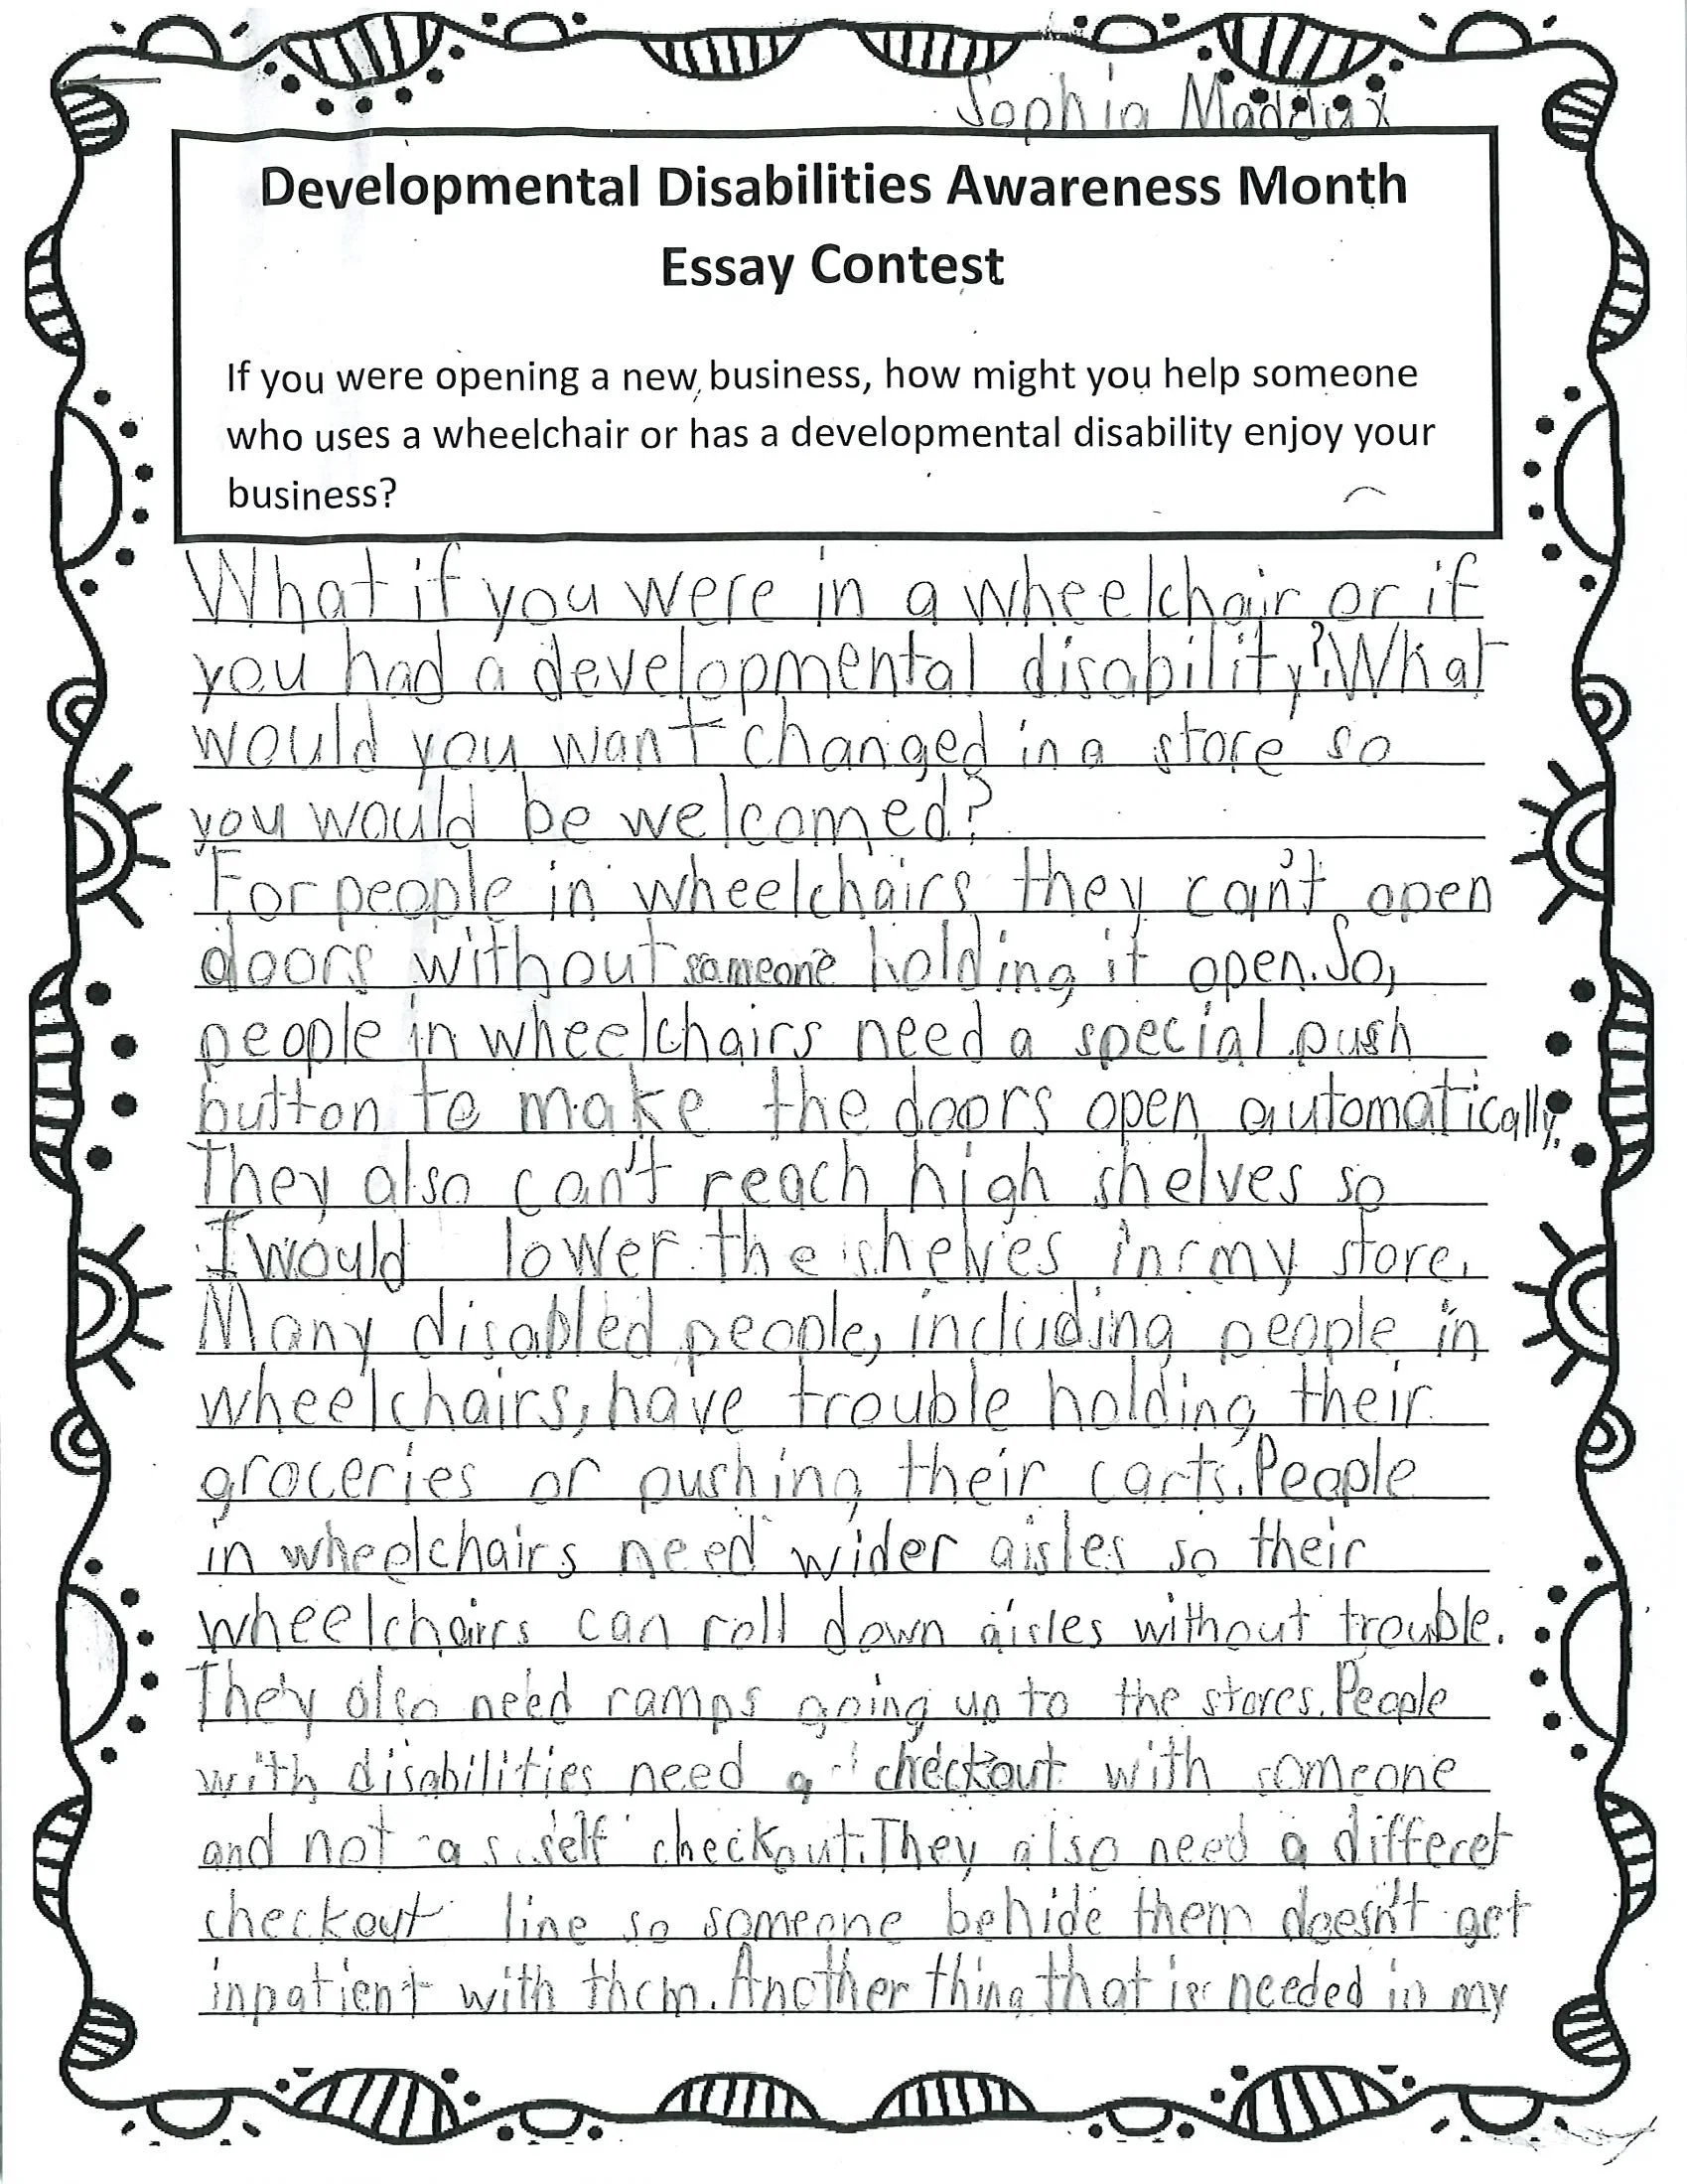 Sophia Maddux
Developmental Disabilities Awareness Month
Essay Contest
If you were opening a new business, how might you help someone
who uses a wheelchair or has a developmental disability enjoy your
business?
What if you were in a wheelchair or if
you had a developmental disability? What
would you want changed in a store so
you would be welcomed?
For people in wheelchairs they can't open
doors without someone holding it open. So,
people in wheelchairs need a special push
button to make the doors open automatically.
They also can't reach high shelves so
I would lower the shelves in my store.
Many disabled people, including people in
wheelchairs, have trouble holding their
groceries or pushing their carts. People
in wheelchairs need wider aisles so their
wheelchairs can roll down aisles without trouble.
They also need ramps going up to the stores. People
with disabilities need a checkout with someone
and not a self checkout. They also need a differet
checkout line so someone behide them doesn't get
inpatient with them. Another thing that is needed in my